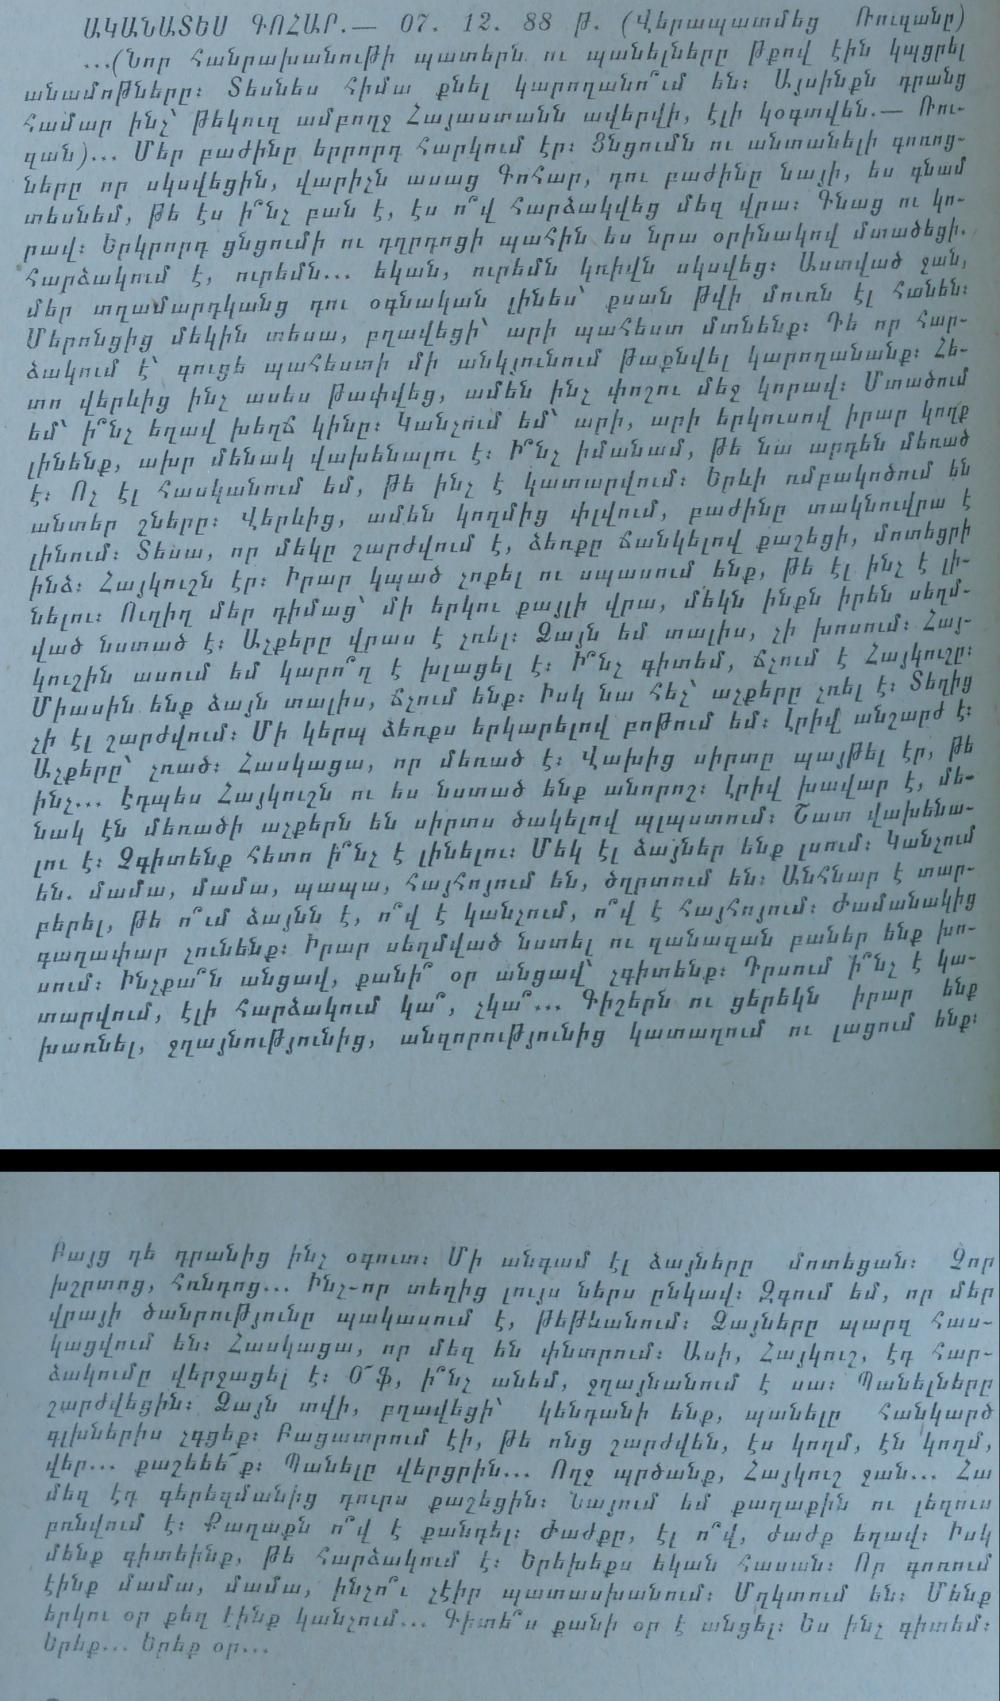 ԱԿԱՆԱՏԵՍ ԳՈՀԱՐ.— 07. 12. 88 թ. (Վերապատմեց Ռուզանը)
...(Նոր հանրախանութի պատերն ու պանելները թքով էին կպցրել
անամոթները։ Տեսնես հիմա քնել կարողանո՞ւմ են։ Այսինքն դրանց
համար ինչ՝ թեկուզ ամբողջ Հայաստանն ավերվի, էլի կօգտվեն.— Ռու-
զան)... Մեր բաժինը երրորդ հարկում էր։ Ցնցումն ու անտանելի գոռոց-
ները որ սկսվեցին, վարիչն ասաց Գոհար, դու բաժինը նայի, ես գնամ
տեսնեմ, թե էս ի՞նչ բան է, էս ո՞վ հարձակվեց մեզ վրա։ Գնաց ու կո-
րավ։ Երկրորդ ցնցումի ու դղրդոցի պահին ես նրա օրինակով մտածեցի.
հարձակում է, ուրեմն... եկան, ուրեմն կռիվն սկսվեց։ Աստված ջան,
մեր տղամարդկանց դու օգնական լինես՝ քսան թվի մուռն էլ հանեն։
Մերոնցից մեկին տեսա, բղավեցի՝ արի պահեստ մտնենք։ Դե որ հար-
ձակում է՝ գուցե պահեստի մի անկյունում թաքնվել կարողանանք։ Հե-
տո վերևից ինչ ասես թափվեց, ամեն ինչ փոշու մեջ կորավ։ Մտածում
եմ՝ ի՞նչ եղավ խեղճ կինը։ Կանչում եմ՝ արի, արի երկուսով իրար կողք
լինենք, ախր մենակ վախենալու է։ Ի՞նչ իմանամ, թե նա արդեն մեռած
է։ Ոչ էլ հասկանում եմ, թե ինչ է կատարվում։ Երևի ռմբակոծում են
անտեր շները։ Վերևից, ամեն կողմից փլվում, բաժինը տակնուվրա է
լինում։ Տեսա, որ մեկը շարժվում է, ձեռքը ճանկելով քաշեցի, մոտեցրի
ինձ։ Հայկուշն էր։ Իրար կպած չոքել ու սպասում ենք, թե էլ ինչ է լի-
նելու։ Ուղիղ մեր դիմաց՝ մի երկու քայլի վրա, մեկն ինքն իրեն սեղմ-
ված նստած է։ Աչքերը վրաս է չռել։ Ձայն եմ տալիս, չի խոսում։ Հայ-
կուշին ասում եմ կարո՞ղ է խլացել է։ Ի՞նչ գիտեմ, ճչում է Հայկուշը։
Միասին ենք ձայն տալիս, ճչում ենք։ Իսկ նա հեչ՝ աչքերը չռել է։ Տեղից
չի էլ շարժվում։ Մի կերպ ձեռքս երկարելով բոթում եմ։ Լրիվ անշարժ է։
Աչքերը՝ չռած։ Հասկացա, որ մեռած է։ Վախից սիրտը պայթել էր, թե
ինչ... էդպես Հայկուշն ու ես նստած ենք անորոշ։ Լրիվ խավար է, մե-
նակ էն մեռածի աչքերն են սիրտս ծակելով պլպստում։ Շատ վախենա-
լու է։ Չգիտենք հետո ի՞նչ է լինելու։ Մեկ էլ ձայներ ենք լսում։ Կանչում
են. մամա, մամա, պապա, հայհոյում են, ծղրտում են։ Անհնար է տար-
բերել, թե ո՞ւմ ձայնն է, ո՞վ է կանչում, ո՞վ է հայհոյում։ Ժամանակից
գաղափար չունենք։ Իրար սեղմված նստել ու զանազան բաներ ենք խո-
սում։ Ինչքա՞ն անցավ, քանի՞ օր անցավ՝ չգիտենք։ Դրսում ի՞նչ է կա-
տարվում, էլի հարձակում կա՞, չկա՞... Գիշերն ու ցերեկն իրար ենք
խառնել, ջղայնությունից, անզորությունից կատաղում ու լացում ենք։
Բայց դե դրանից ինչ օգուտ։ Մի անգամ էլ ձայները մոտեցան։ Չոր
խշրտոց, հռնդոց... Ինչ-որ տեղից լույս ներս ընկավ։ Զգում եմ, որ մեր
վրայի ծանրությունը պակասում է, թեթևանում։ Ձայները պարզ հաս-
կացվում են։ Հասկացա, որ մեզ են փնտրում։ Ասի, Հայկուշ, էդ հար-
ձակումը վերջացել է։ Օ՜ֆ, ի՞նչ անեմ, ջղայնանում է սա։ Պանելները
շարժվեցին։ Ձայն տվի, բղավեցի՝ կենդանի ենք, պանելը հանկարծ
գլխներիս չգցեք։ Բացատրում էի, թե ոնց շարժվեն, էս կողմ, էն կողմ,
վեր... քաշեեե՜ք։ Պանելը վերցրին... Ողջ պրծանք, Հայկուշ ջան... Հա
մեզ էդ գերեզմանից դուրս քաշեցին։ Նայում եմ քաղաքին ու լեզուս
բռնվում է։ Քաղաքն ո՞վ է քանդել։ Ժաժքը, էլ ո՞վ, ժաժք եղավ։ Իսկ
մենք գիտեինք, թե հարձակում է։ Երեխեքս եկան հասան։ Որ գոռում
էինք մամա, մամա, ինչո՞ւ չէիր պատասխանում։ Մղկտում են։ Մենք
երկու օր քեզ էինք կանչում... Գիտե՞ս քանի օր է անցել։ Ես ինչ գիտեմ։
Երեք... Երեք օր...